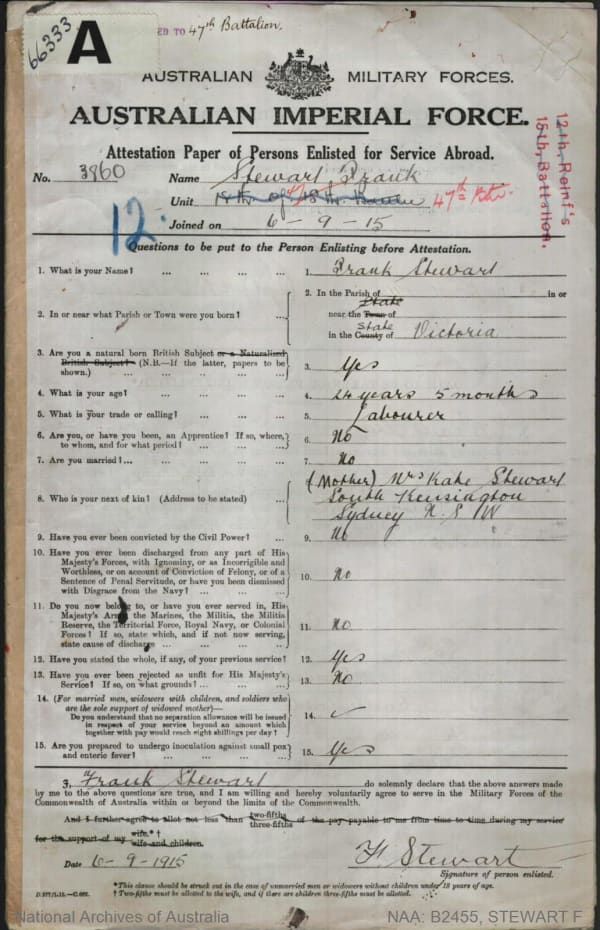 66333
A
ED TO 47th Battalion.
AUSTRALIAN MILITARY FORCES.
AUSTRALIAN IMPERIAL FORCE.
Attestation Paper of Persons Enlisted for Service Abroad.
12th, Reinf's
15th, Battalion.
No. 3860 Name Stewart Frank
Unit 47th Btn.
Joined on 6-9-15
12.
Questions to be put to the Person Enlisting before Attestation.
1. What is your Name? ... ... ... 1. Frank Stewart
2. In or near what Parish or Town were you born? ... 2. In the Parish of in or
near the Town of State
in the County of State Victoria
3. Are you a natural born British Subject or a Naturalised
British Subject? (N.B.—If the latter, papers to be
shown.) ... ... ... ... 3. Yes
4. What is your age? ... ... ... 4. 24 years 5 months
5. What is your trade or calling? ... ... ... 5. Labourer
6. Are you, or have you been, an Apprentice? If so, where,
to whom, and for what period? ... ... ... 6. No
7. Are you married?... ... ... ... 7. No
8. Who is your next of kin? (Address to be stated) ... 8. (Mother) Mrs Kate Stewart
South Kensington
Sydney N.S.W
9. Have you ever been convicted by the Civil Power? ... 9. No
10. Have you ever been discharged from any part of His
Majesty's Forces, with Ignominy, or as Incorrigible and
Worthless, or on account of Conviction of Felony, or of a
Sentence of Penal Servitude, or have you been dismissed
with Disgrace from the Navy? ... ... ... 10. No
11. Do you now belong to, or have you ever served in, His
Majesty's Army, the Marines, the Militia, the Militia
Reserve, the Territorial Force, Royal Navy, or Colonial
Forces? If so, state which, and if not now serving,
state cause of discharge ... ... ... 11. No
12. Have you stated the whole, if any, of your previous service? 12. Yes
13. Have you ever been rejected as unfit for His Majesty's
Service? If so, on what grounds? ... ... ... 13. No
14. (For married men, widowers with children, and soldiers who
are the sole support of widowed mother)—
Do you understand that no separation allowance will be issued
in respect of your service beyond an amount which
together with pay would reach eight shillings per day? 14. ✓
15. Are you prepared to undergo inoculation against small pox
and enteric fever? ... ... ... ... 15. Yes
I, Frank Stewart do solemnly declare that the above answers made
by me to the above questions are true, and I am willing and hereby voluntarily agree to serve in the Military Forces of the
Commonwealth of Australia within or beyond the limits of the Commonwealth.
And I further agree to allot not less than two-fifths three-fifths of the pay payable to me from time to time during my service
for the support of my wife.*† wife and children.
Date 6-9-1915 F Stewart
Signature of person enlisted.
*This clause should be struck out in the case of unmarried men or widowers without children under 18 years of age.
† Two-fifths must be allotted to the wife, and if there are children three-fifths must be allotted.
National Archives of Australia NAA: B2455, STEWART F